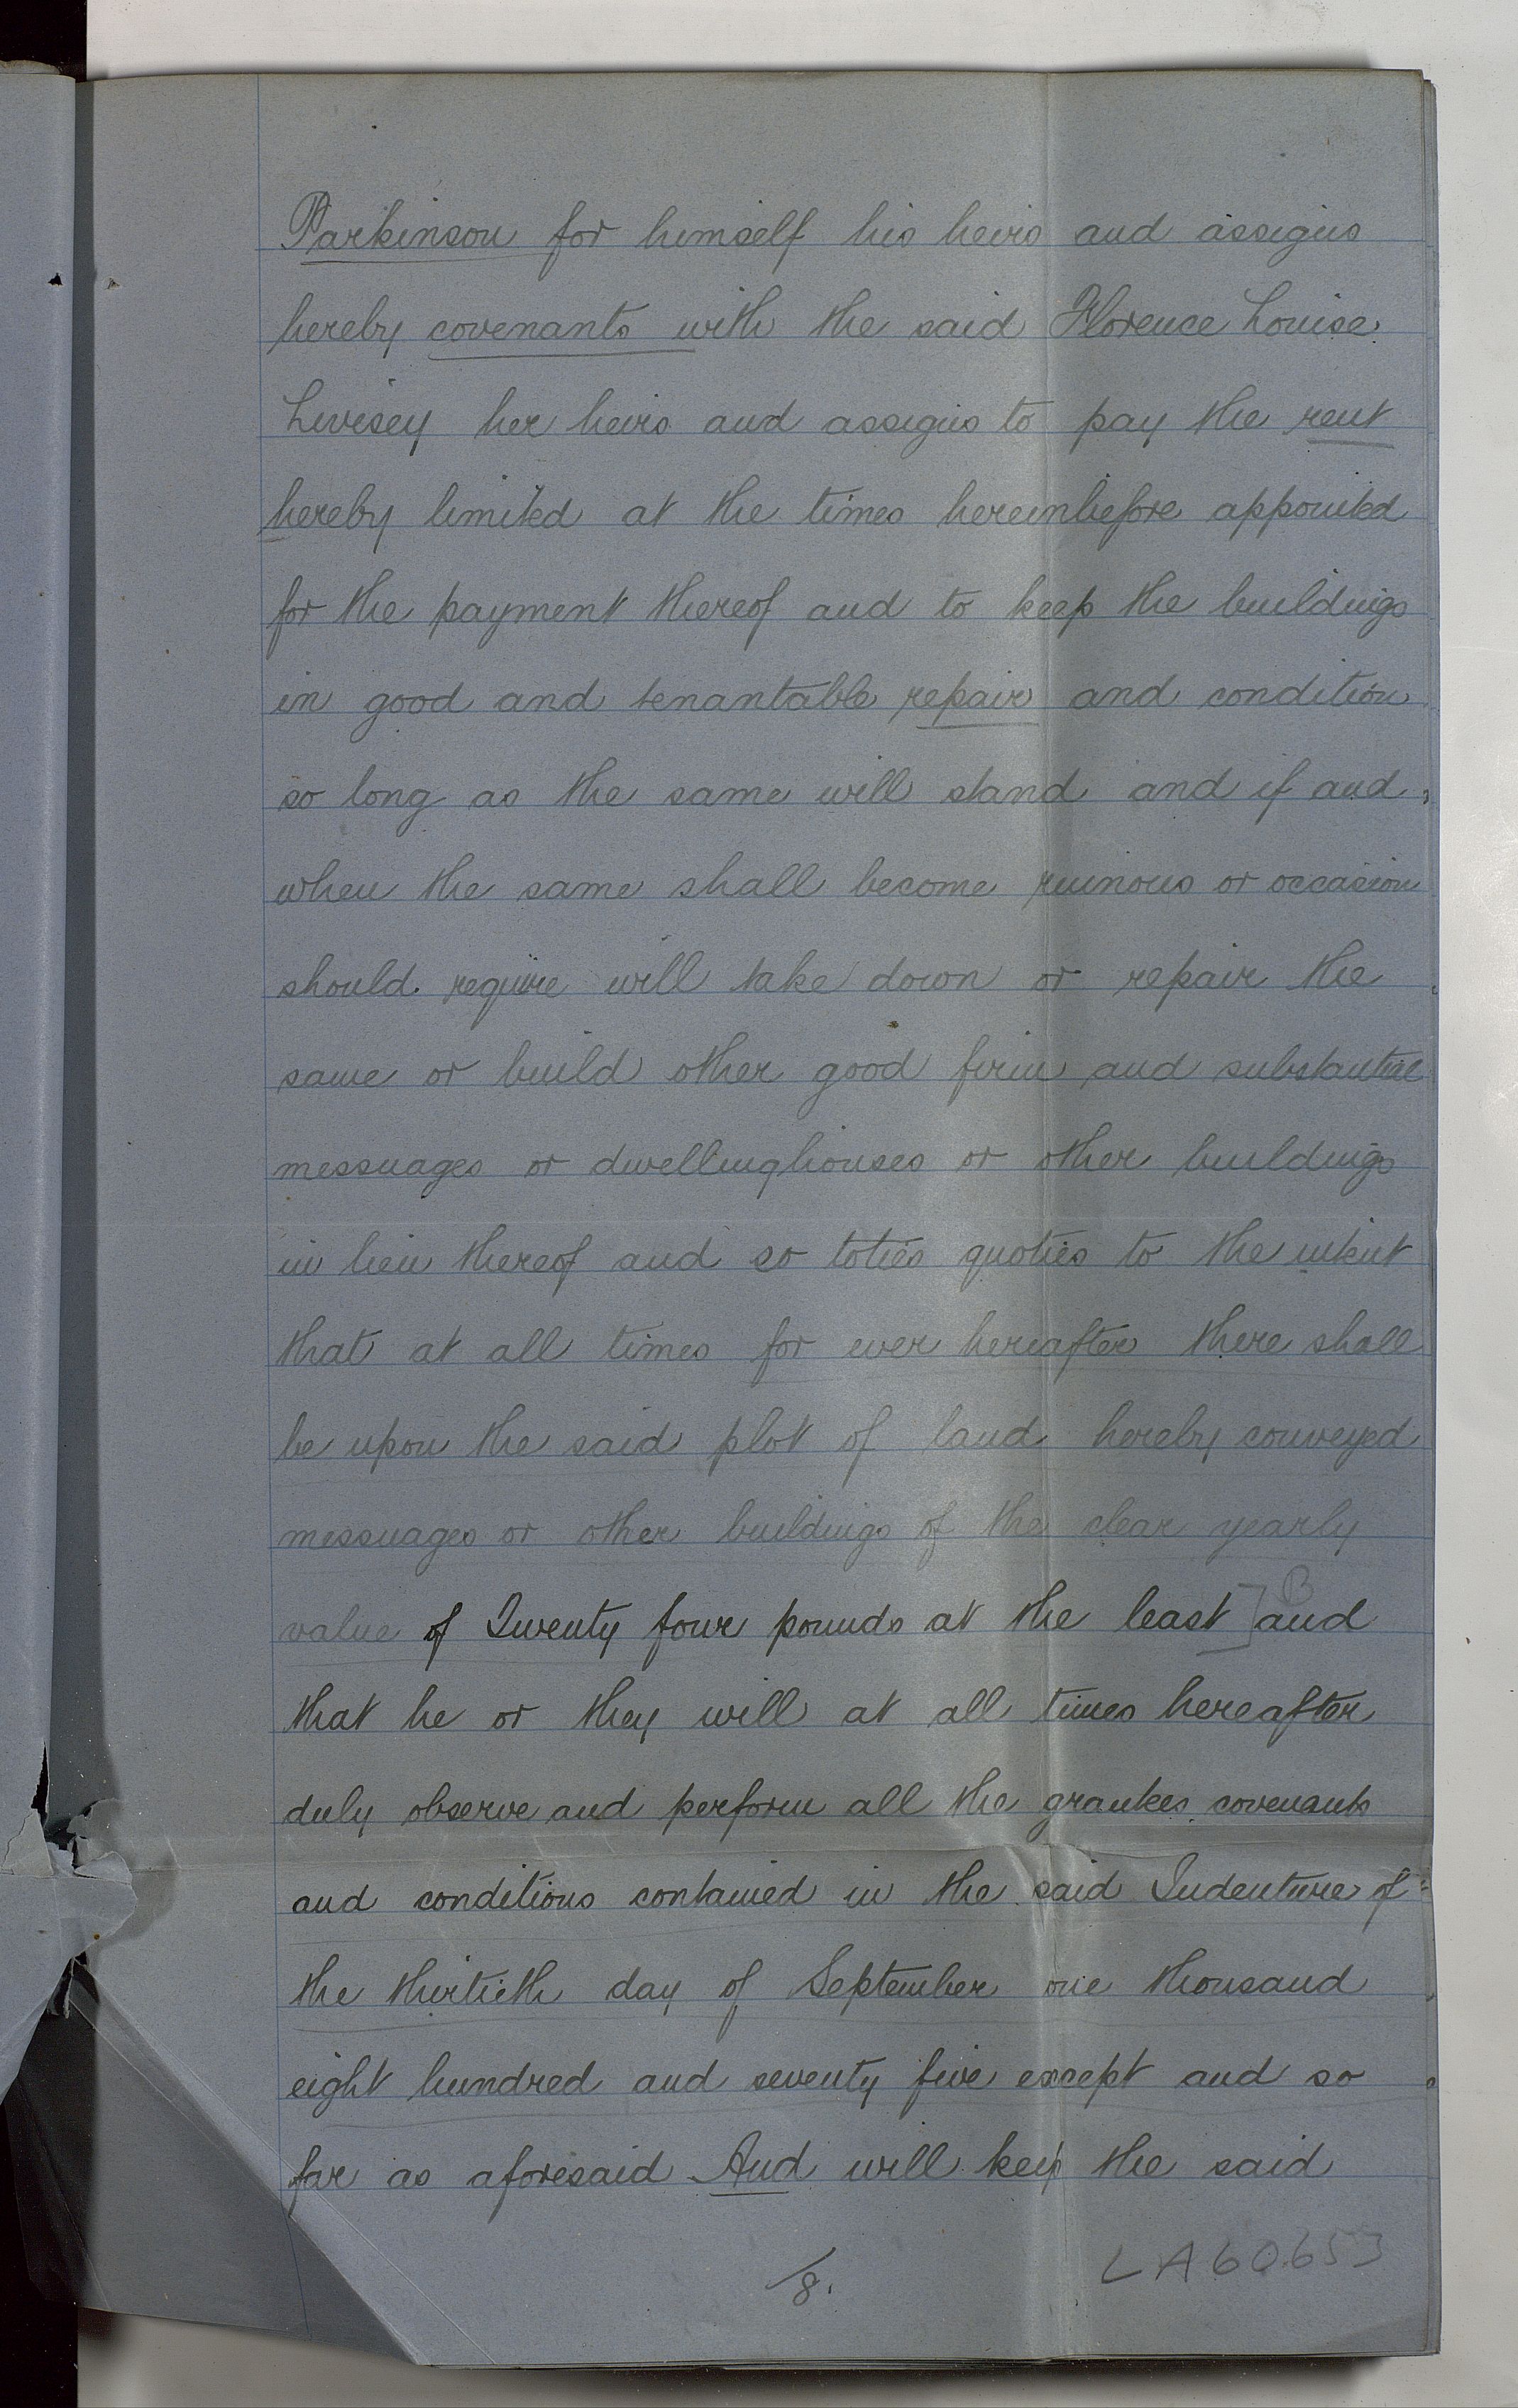 Parkinson for himself his heirs and assigns
hereby covenants with the said Florence Louise
Livesey her heirs and assigns to pay the rent
hereby limited at the times hereinbefore appointed
for the payment thereof and to keep the buildings
in good and tenantable repair and condition
so long as the same will stand and if and
when the same shall become ruinous or occasion
should require will take down or repair the
same or build other good firm and substantial
messuages or dwellinghouses or other buildings
in lieu thereof and so toties quoties to the intent
that at all times for ever hereafter there shall
be upon the said plot of land hereby conveyed
messuages or other buildings of the clear yearly
B
value of Twenty four pounds at the least] and
that he or they will at all times hereafter
duly observe and perform all the grantees covenants
and conditions contained in the said Indenture of
the thirtieth day of September one thousand
eight hundred and seventy five except and so
far as aforesaid And will keep the said
8.
LA60653